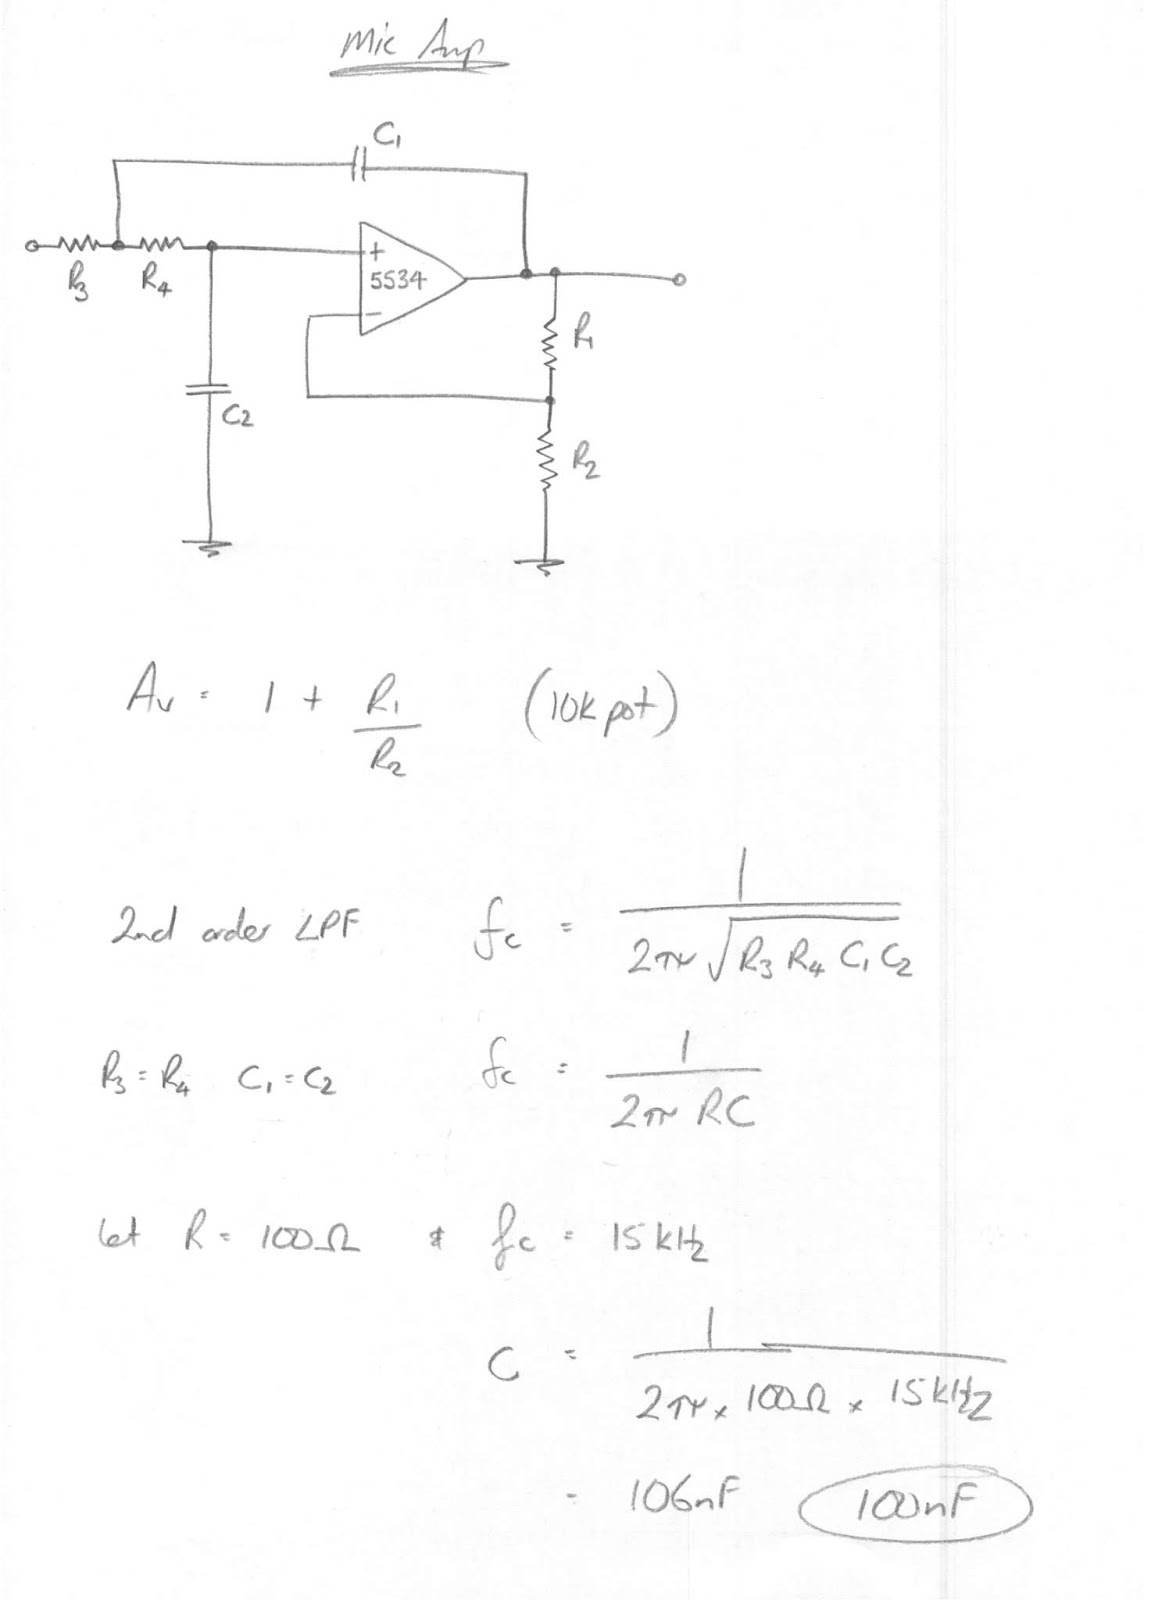 Mic Amp
C1
R3 R4
+
5534
−
R1
C2
R2
Av = 1 + R1/R2 (10k pot)
2nd order LPF fc = 1/(2π√(R3 R4 C1 C2))
R3 = R4 C1 = C2 fc = 1/(2π RC)
let R = 100Ω & fc = 15kHz
C = 1/(2π × 100Ω × 15kHz)
= 106nF 100nF